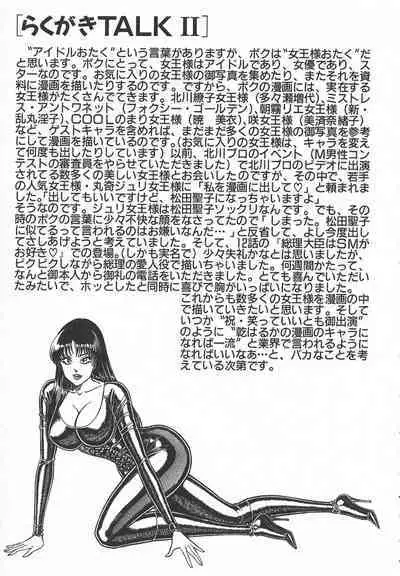 [らくがきTALK Ⅱ]
“アイドルおたく”という言葉がありますが、ボクは“女王様おたく”だ
と思います。ボクにとって、女王様はアイドルであり、女優であり、ス
ターなのです。お気に入りの女王様の御写真を集めたり、またそれを資
料に漫画を描いたりするのです。ですから、ボクの漫画には、実在する
女王様がたくさんでてきます。北川繚子女王様（多々瀬増代）、ミストレ
ス・アントワネット（フォクシー・ゴールデン）、朝霧リエ女王様（新・
乱丸淫子）、ＣＯＯＬのまり女王様（暁　美衣）、咲女王様（美済奈緒子）
など、ゲストキャラを含めれば、まだまだ多くの女王様の御写真を参考
にして漫画を描いているのです。（お気に入りの女王様は、キャラを変え
て何度も出したりしています）以前、北川プロのイベント（Ｍ男性コン
テストの審査員をやらされちゃいました）で北川プロのビデオに出演
されてる数多くの美しい女王様とお会いしたのですが、その中で、若手
の人気女王様・丸奇ジュリ女王様に「私を漫画に出して♡」と頼まれま
した。「出してもいいですけど、松田聖子になっちゃいますよ」
そうなのです。ジュリ女王様は松田聖子ソックリなのです。でも、その
時のボクの言葉に少々不満な顔をなさってたので「しまった。松田聖子
に似てるって言われるのはお嫌いなんだ…」と反省して、よし今度出し
てさしあげようと考えていました。そして、12話の「総理大臣はＳＭが
お好き♡」での登場。（しかも実名で）少々失礼かなとは思いましたが、
ビクビクしながら総理の愛人役で描いちゃいました。何週間かたって、
なんと御本人から御礼の電話をいただきました。とても喜んでいただい
たみたいで、ホッとしたと同時に喜びで胸がいっぱいになりました。
これからも数多くの女王様を漫画の中
で描いていきたいと思います。そして
いつか“祝・笑っていいとも御出演”
のように“乾はるかの漫画のキャラに
なれば一流”と業界で言われるように
なればいいなあ…と、バカなことを考
えている次第です。